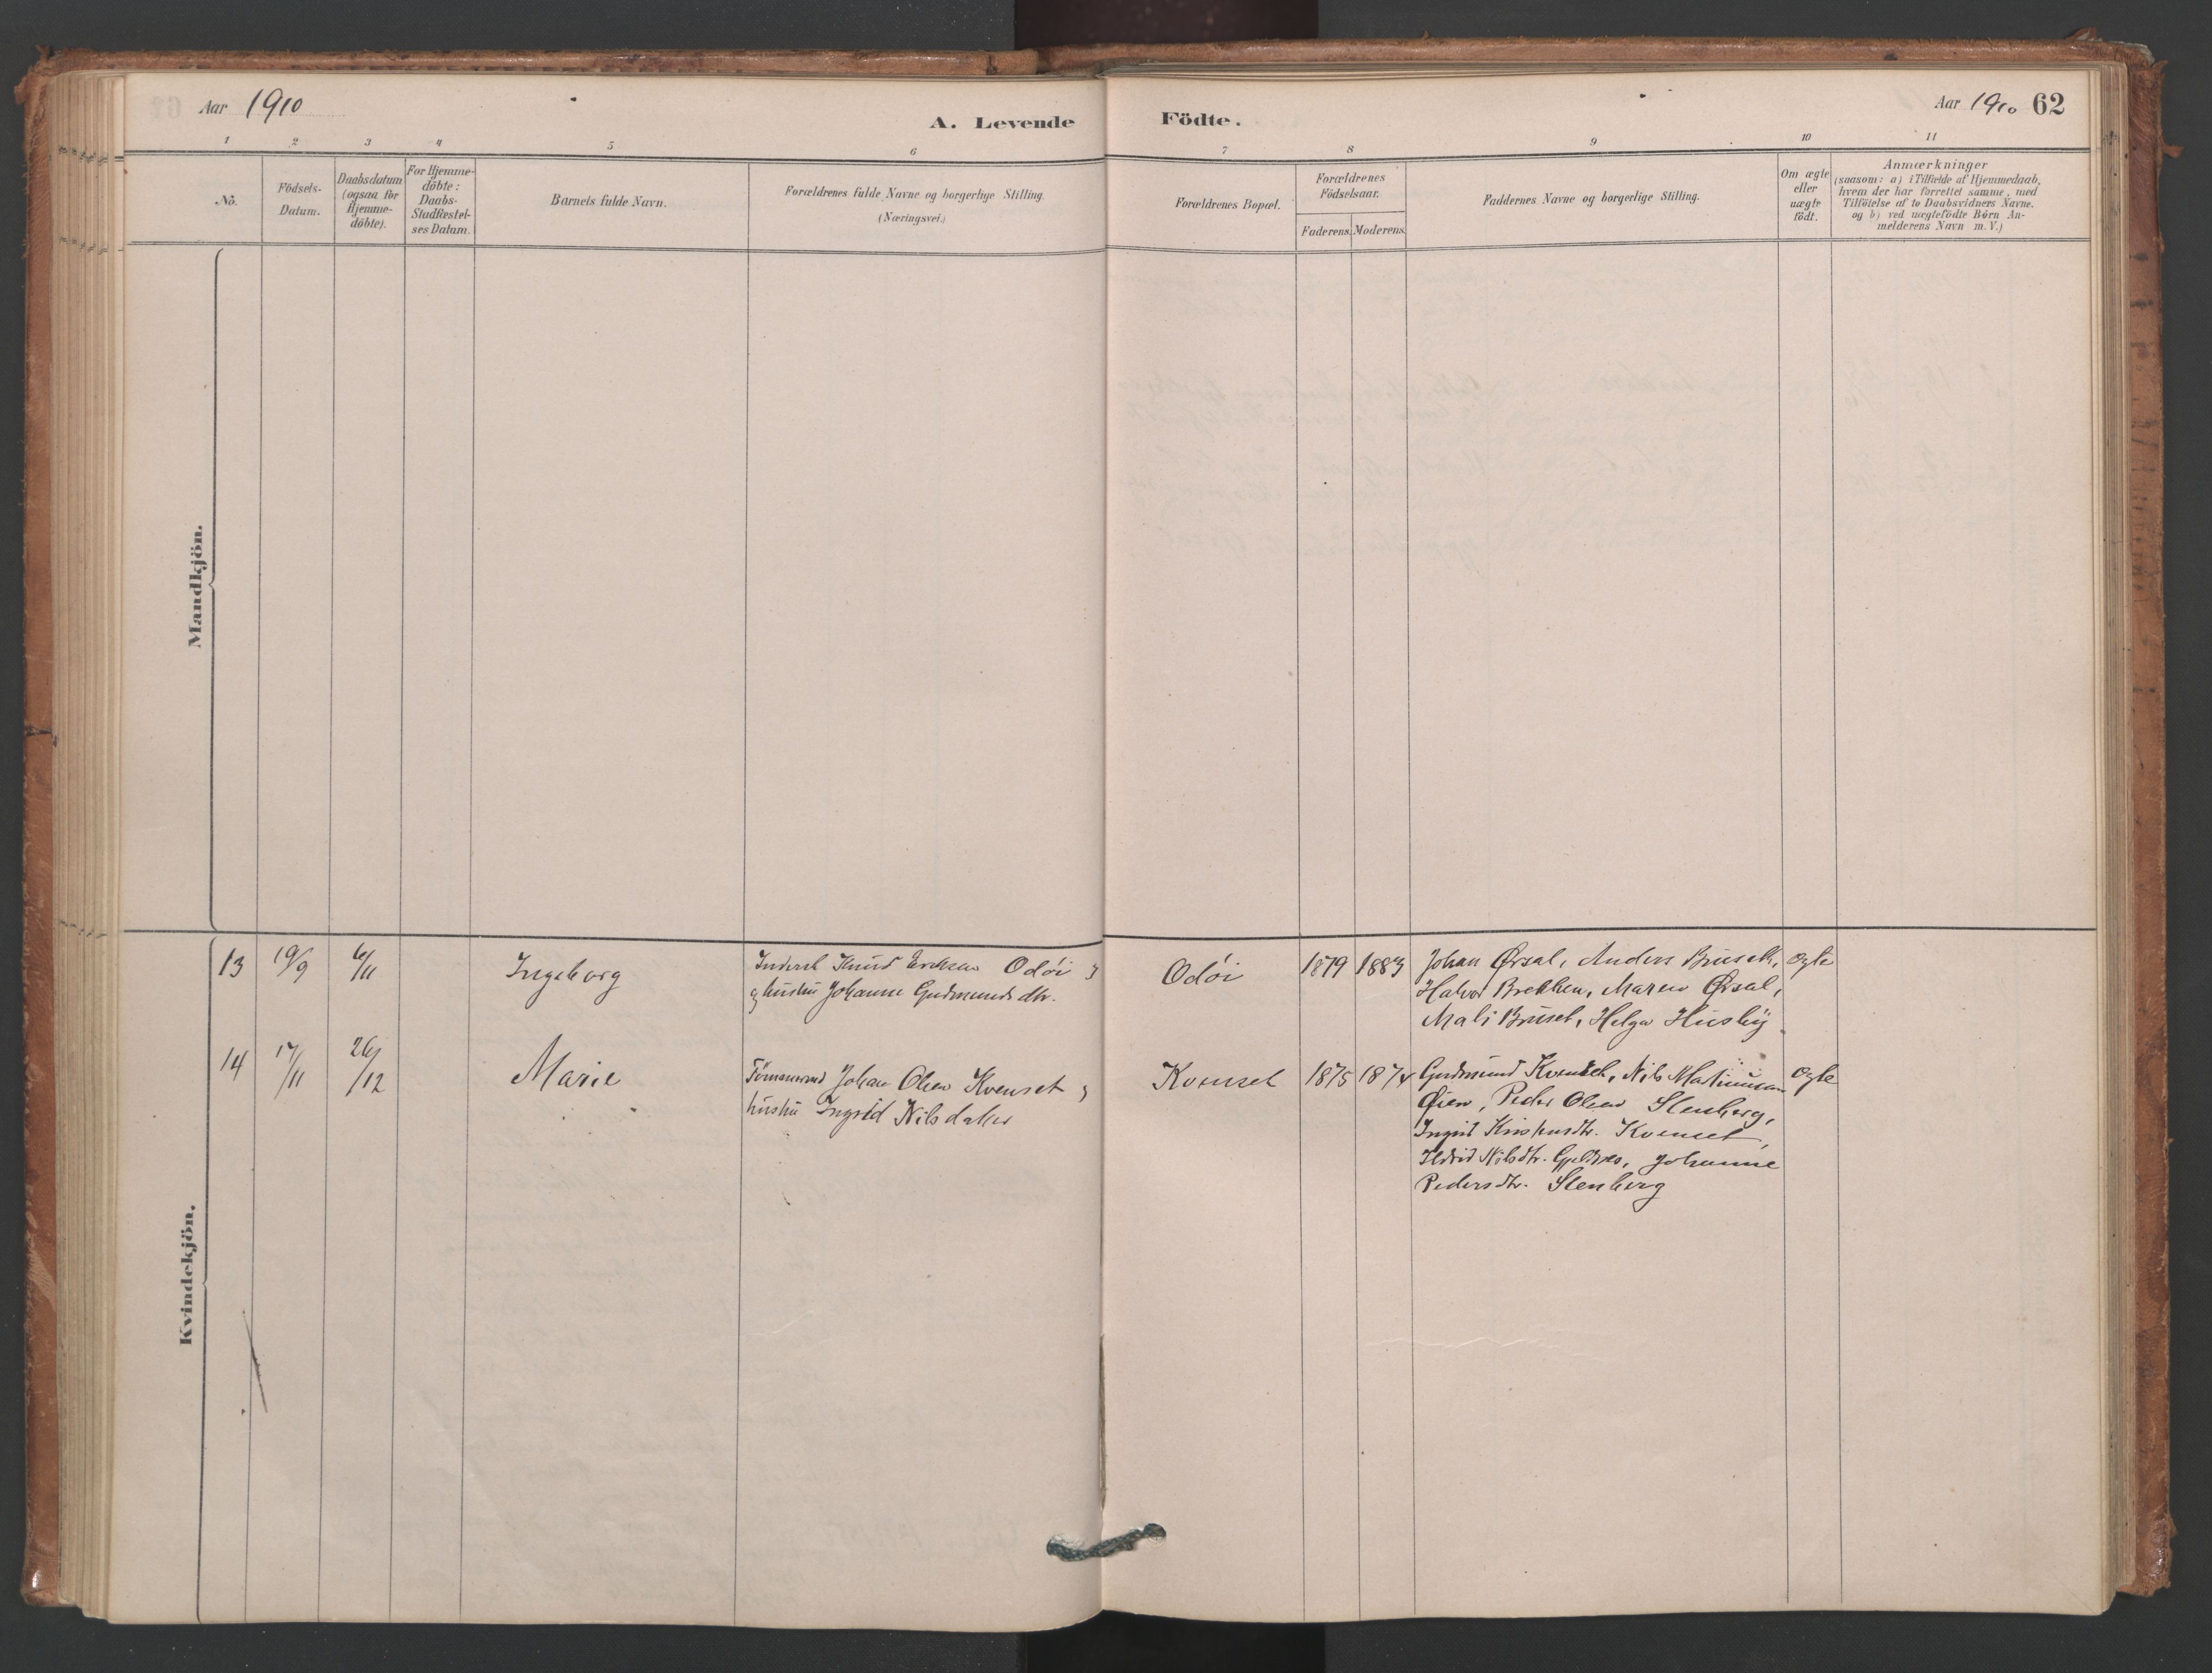 Aar 1910
A. Levende Födte.
Aar 1910 62
1 2 3 4 5 6 7 8 9 10 11
No.
Födsels-
Datum.
Daabsdatum
(ogsaa for
Hjemme-
döbte).
For Hjemme-
döbte:
Daabs-
Stadfæstel-
ses Datum.
Barnets fulde Navn.
Forældrenes fulde Navne og borgerlige Stilling.
(Næringsvei.)
Forældrenes Bopæl.
Forældrenes
Födselsaar.
Faderens. Moderens.
Faddernes Navne og borgerlige Stilling.
Om ægte
eller
uægte
födt.
Anmærkninger
(saasom: a) i Tilfælde af Hjemmedaab,
hvem der har forrettet samme, med
Tilföielse af to Daabsvidners Navne.
og b) ved uægtefödte Börn An-
melderens Navn m.V.)
Mandkjön.
Kvindekjön.
13 19/9 6/11 Ingeborg
Knud Ericksen Odöi
og hustru Johanne Gudmunds dtr.
Odöi 1879 1883
Johan Ørsal, Anders Bruset,
Halvor Brekken, Maren Ørsal,
Mali Bruset, Helga Husby
Ogte
14 17/11 26/12 Marie
Tömmermand Johan Olsen Kvenset
hustru Ingrid Nilsdatter
Kvenset 1875 1874
Gudmund Kvenset, Nils Martinusen
Øien, Peder Olsen Stenberg,
Ingrid Kristensdtr. Kvenset,
Nilsdtr. Johanne
Pedersdtr. Stenberg
Ogte